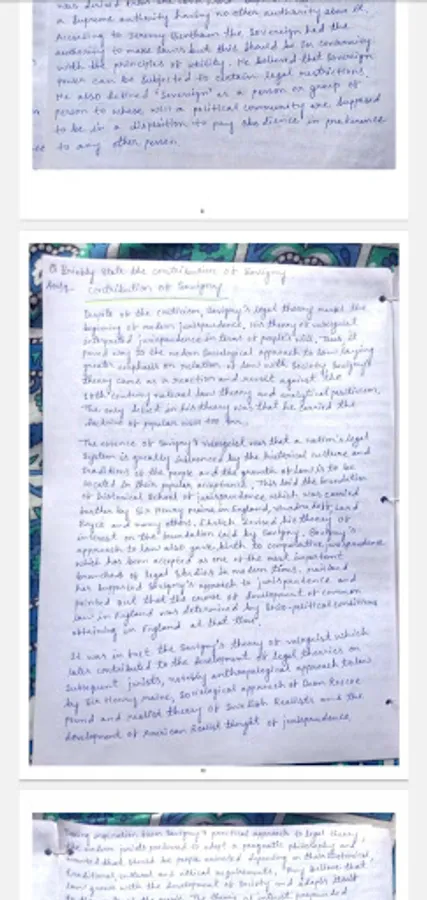 a supreme authority having no other authority above it.
According to Jeremy Bentham the Sovereign had the
authority to make laws but this should be in conformity
with the principles of utility. He believed that Sovereign
power can be subjected to certain legal restrictions.
He also defined 'Sovereign' as a person or group of
person to whose will a political community are supposed
to be in a disposition to pay obedience in preference
to any other person.
Q Briefly state the contribution of Savigny
Contribution of Savigny
Despite of the criticism, Savigny's legal theory marks the
beginning of modern jurisprudence. His theory of volksgeist
interpreted jurisprudence in terms of people's will. Thus, it
paved way to the modern sociological approach to law laying
greater emphasis on relation of law with society. Savigny's
theory came as a reaction and revolt against the
18th century natural law theory and analytical positivism.
The only defect in his theory was that he carried the
doctrine of popular will too far.
The essence of Savigny's volksgeist was that a nation's legal
system is greatly influenced by the historical culture and
traditions of the people and the growth of law is to be
located in their popular acceptance. This laid the foundation
of historical school of jurisprudence which was carried
further by Sir Henry Maine in England, Lord
Bryce and many others. Ehrlich his theory of
interest on the foundation laid by Savigny. Savigny's
approach to law also gave birth to comparative jurisprudence
which has been accepted as one of the most important
branches of legal studies in modern times. Maitland
has supported Savigny's approach to jurisprudence and
pointed out that the course of development of common
law in England was determined by socio-political conditions
obtaining in England at that time.
It was in fact the Savigny's theory of volksgeist which
later contributed to the development of legal theories on
subsequent jurists, notably anthropological approach to law
by Sir Henry Maine, sociological approach of Dean Roscoe
Pound and realist theory of Swedish Realists and the
development of American Realist thought of jurisprudence.
inspiration from Savigny's practical approach to legal theory,
the modern jurists preferred to adopt a pragmatic philosophy and
wanted that should be people oriented depending on their historical,
traditional, cultural and ethical requirements. They believe that
law grows with the development of society and adapts itself